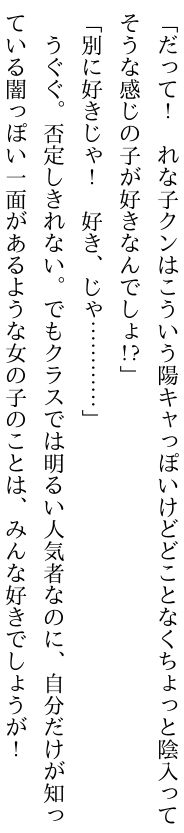 「だって！　れな子クンはこういう陽キャっぽいけどどことなくちょっと陰入って
そうな感じの子が好きなんでしょ!?」
「別に好きじゃ！　好き、じゃ…………」
　うぐぐ。否定しきれない。でもクラスでは明るい人気者なのに、自分だけが知っ
ている闇っぽい一面があるような女の子のことは、みんな好きでしょうが！